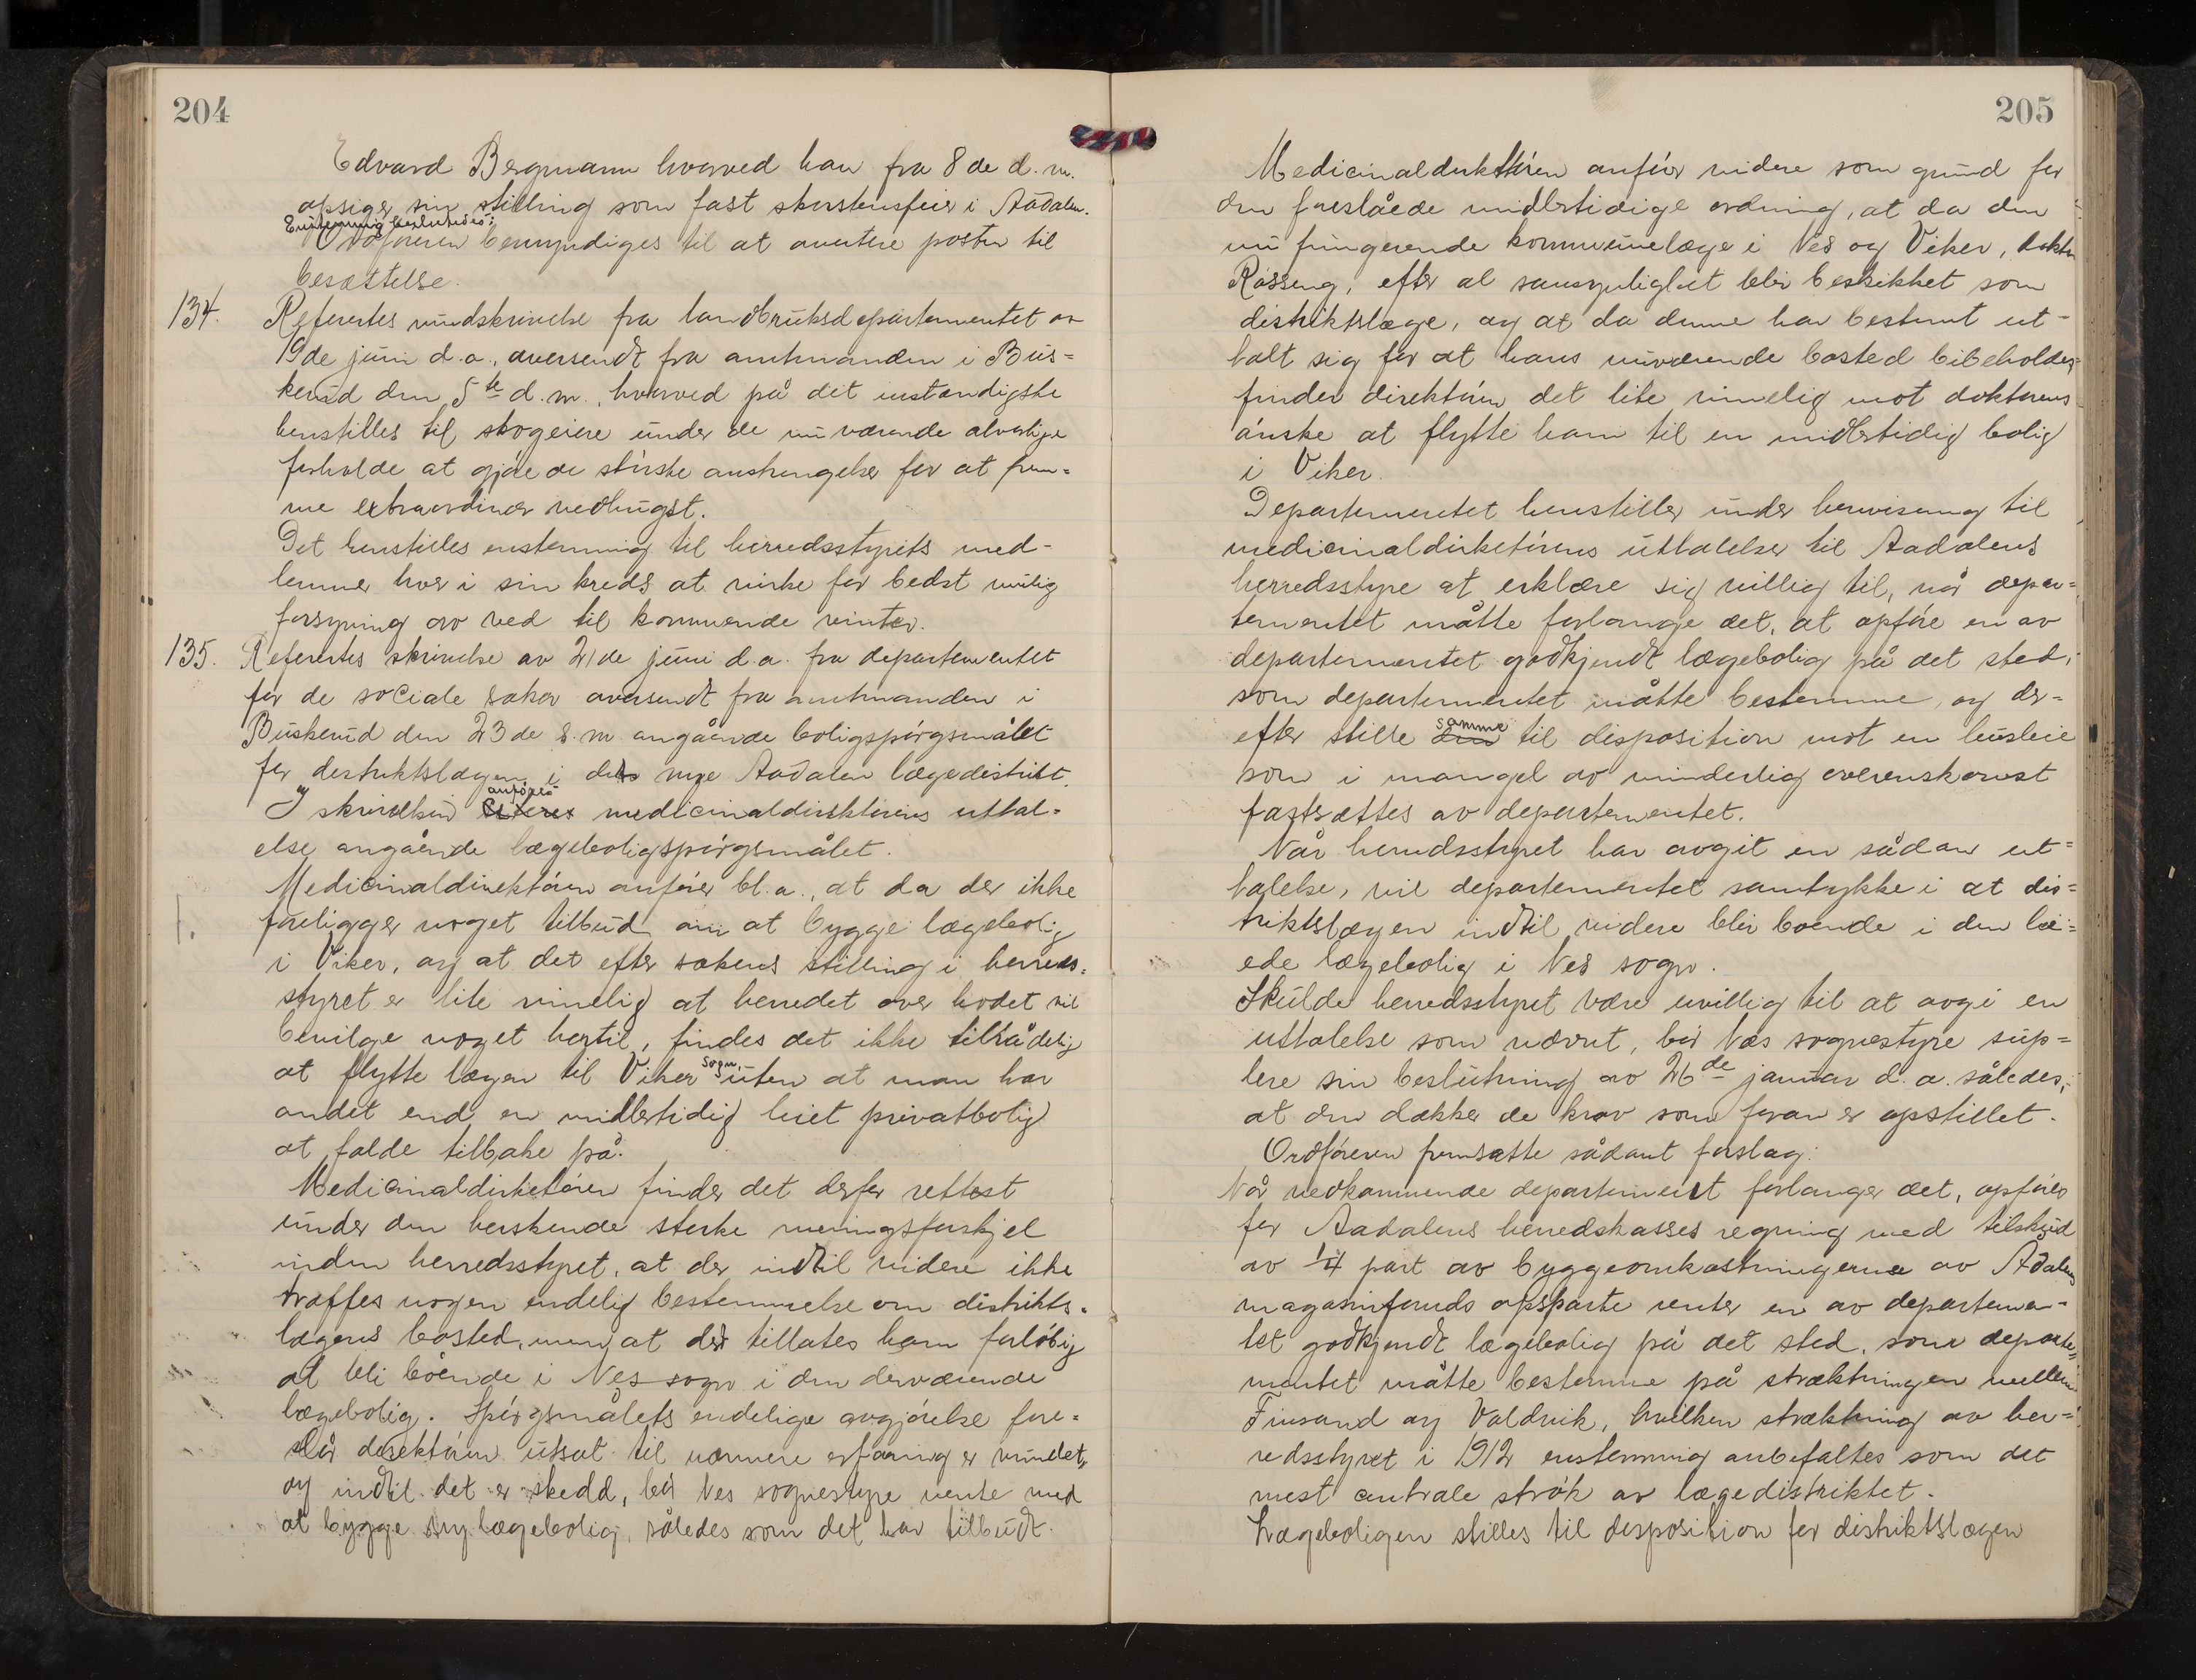 204
Edvard Bergmann hvorved han fra 8de d.m.
opsiger sin stilling som fast skorstensfeier i Aadalen.
Enstemmig besluttedes:
Ordføreren bemyndiges til at avertere posten til
besættelse.
134. Refertes rundskrivelse fra landbruksdepartementet av
19de juni d.a., oversendt fra amtmanden i Bus=
kerud den 5te d.m., hvorved på det instændigste
henstilles til skogeiere under de nuværende alvorlige
forholde at gjøre de største anstrengelser for at frem=
me extraordinær vedhugst.
Det henstilles enstemmig til herredsstyrets med-
lemmer hver i sin kreds at virke for bedst mulig
forsyning av ved til kommende vinter.
135. Refertes skrivelse av 21de juni d.a. fra departementet
for de sociale saker oversendt fra amtmanden i
Buskerud den 23de s.m. angående boligspørgsmålet
for distriktslægen i det nye Aadalen lægedistrikt.
I skrivelsen anføres medicinaldirektørens uttal=
else angående lægeboligspørgsmålet.
Medicinaldirektøren anfører bl.a., at da der ikke
foreligger noget tilbud om at bygge lægebolig
i Viker, og at det efter sakens stilling i herreds=
styret er lite rimelig at herredet over hodet vil
bevilge noget hertil, findes det ikke tilrådelig
at flytte lægen til Viker sogn, uten at man har
andet end en midlertidig leiet privatbolig
at falde tilbake på.
Medicinaldirektøren finder det derfor rettest
under den herskende sterke meningsforskjel
inden herredsstyret, at der indtil videre ikke
træffes nogen endelig bestemmelse om distrikts=
lægens bosted, men at det tillates ham foreløbig
at bli boende i Nes sogn i den derværende
lægebolig. Spørgsmålets endelige avgjørelse fore=
slår direktøren utsat til nærmere erfaring er vundet,
og indtil det er skedd, bør Nes sognestyre vente med
at bygge ny lægebolig, således som det har tilbudt.
205
Medicinaldirektøren anfører videre som grund for
den foreslåede midlertidige ordning, at da den
nu fungerende kommunelæge i Nes og Viker, doktor
Røsseng, efter al sansynlighet blir beskikket som
distriktslæge, og at da denne har bestemt ut-
talt sig for at hans nuværende bosted bibeholdes
finder direktøren det lite rimelig mot doktorens
ønske at flytte ham til en midlertidig bolig
i Viker.
Departementet henstiller under henvisning til
medicinaldirektørens uttalelser til Aadalens
herredsstyre at erklære sig villig til, når depar=
tementet måtte forlange det, at opføre en av
departementet godkjendt lægebolig på det sted,
som departementet måtte bestemme, og der=
efter stille samme til disposition mot en husleie
som i mangel av minderlig overenskomst
fastsættes av departementet.
Når herredsstyret har avgit en sådan ut=
talelse, vil departementet samtykke i at dis=
triktslægen indtil videre blir boende i den lei=
ede lægebolig i Nes sogn.
Skulde herredsstyret være uvillig til at avgi en
uttalelse som nævnt, bør Nes sognestyre sup=
lere sin beslutning av 26de januar d.a. således,
at den dækker de krav som foran er opstillet.
Ordføreren fremsatte sådant forslag:
Når vedkommende departement forlanger det, opføres
for Aadalens herredskasses regning med tilskud
av 1/4 part av byggeomkostningerne av Ådalens
magasinfonds opsparte renter en av departemen-
tet godkjendt lægebolig på det sted, som departe=
mentet måtte bestemme på strækningen mellem
Finsand og Valdvik, hvilken strækning av her=
redsstyret i 1912 enstemmig anbefaltes som det
mest centrale strøk av lægedistriktet.
Lægeboligen stilles til disposition for distriktslægen